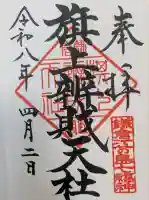 奉拝
旗上辨財天社
令和八年
四月二日